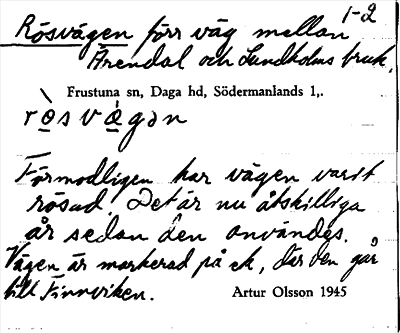 1-2
Rösvägen förr väg mellan
Ärendal och Lundholms bruk.
Frustuna sn, Daga hd, Södermanlands l,.
rò̱svá̱gən
Förmodligen har vägen varit
rösad. Det är nu åtskilliga
år sedan den användes.
Vägen är markerad på ek, där den går
till Finnviken.
Artur Olsson 1945